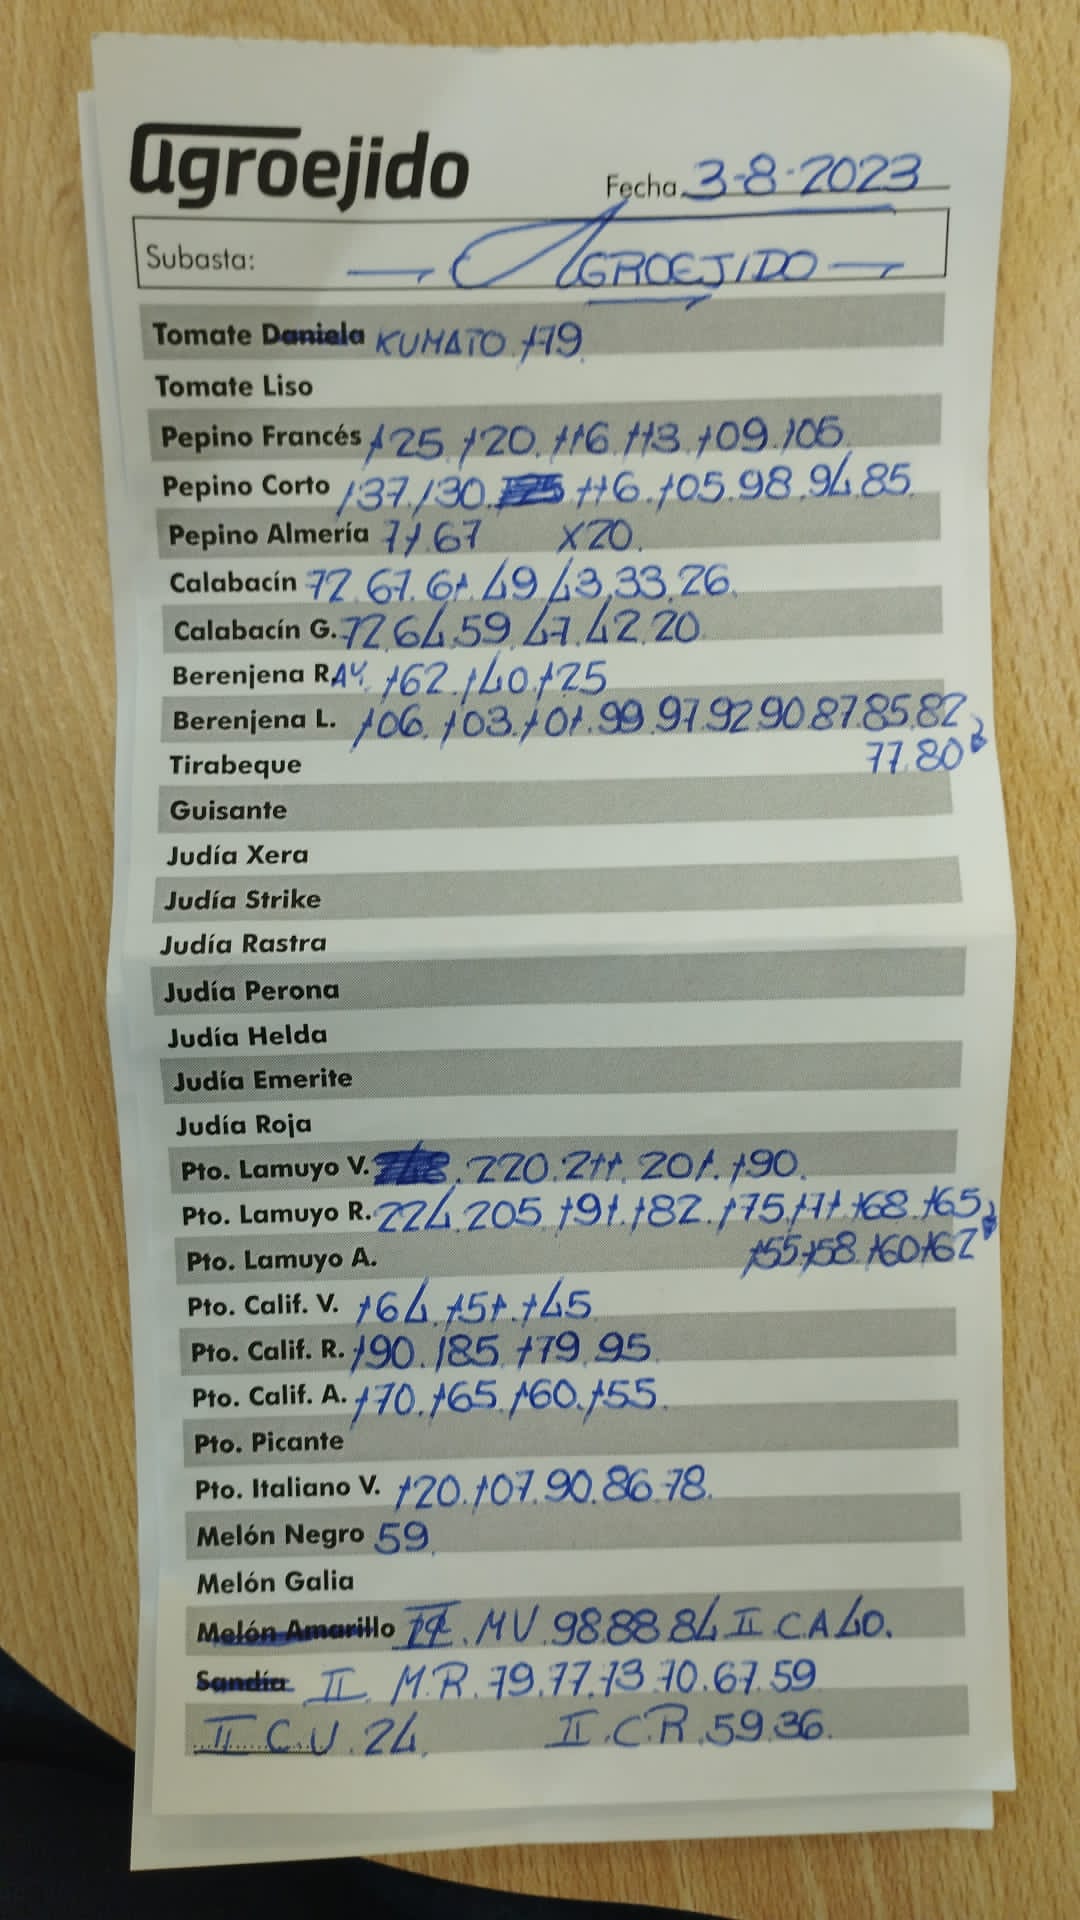 agroejido
Fecha 3-8-2023
Subasta: AGROEJIDO
Tomate Daniela KUMATO 179
Tomate Liso
Pepino Francés 125.120.116.113.109.105
Pepino Corto 137.130. 116.105.98.94.85
Pepino Almería 71.67 X20.
Calabacín 72.67.61.49.43.33.26.
Calabacín G. 72.64.59.47.42.20
Berenjena RAY. 162.140.125
Berenjena L. 106.103.101.99.97.92.90.87.85.82
77.80
Tirabeque
Guisante
Judía Xera
Judía Strike
Judía Rastra
Judía Perona
Judía Helda
Judía Emerite
Judía Roja
Pto. Lamuyo V. .220.211.201.190.
Pto. Lamuyo R. 224.205.191.182.175.171.168.165
155.158.160.162
Pto. Lamuyo A.
Pto. Calif. V. 164.151.145
Pto. Calif. R. 190.185.179.95.
Pto. Calif. A. 170.165.160.155.
Pto. Picante
Pto. Italiano V. 120.107.90.86.78.
Melón Negro 59.
Melón Galia
Melón Amarillo II. MV.98.88.84 II C.A 40.
Sandía II. M.R.79.77.73.70.67.59
II C.V.24. II.C.R.59.36.